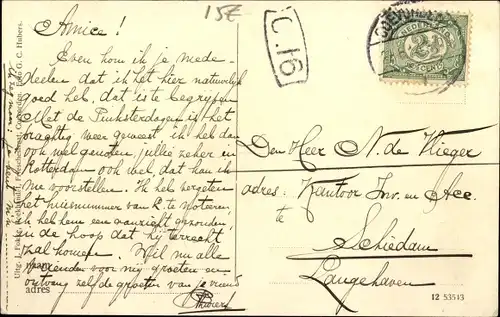 15E
C.16
Amice!
Even kom ik je mede-
deelen dat ik het hier natuurlijk
goed heb, dat is te begrijpen
Met de Pinksterdagen is het
prachtig weer geweest ik heb dan
ook wel genoten jullie zeker in
Rotterdam ook wel, dat kan ik
me voorstellen. Ik heb vergeten
het huisnummer van R. te noteeren,
ik heb hem een aanzicht gezonden,
in de hoop dat hij terecht
zal komen. Wil nu alle
vrienden voor mij groeten en
ontvang zelf de groeten van je vriend
adres
Den Heer N. de Vlieger
adres: Kantoor Inv. en Acc.
te
Schiedam
Langehaven
NEDERLAND
2½
CENT
COEVORDEN
Foto G. C. Hubers.
12 53513